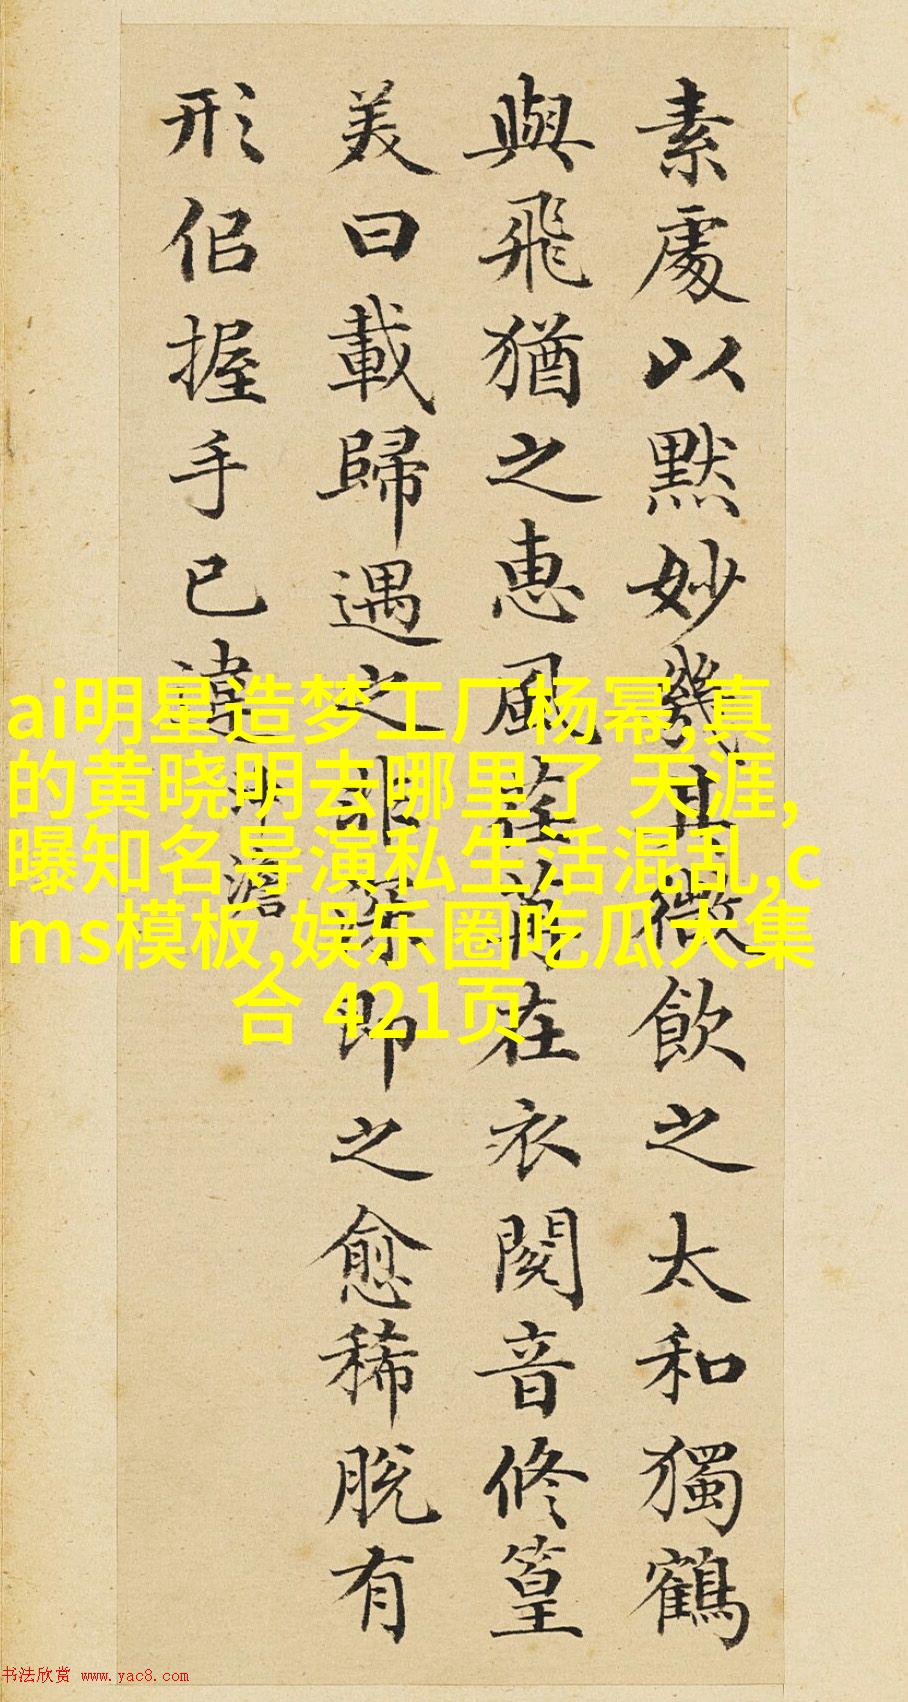 素處以默妙幾其微飲之太和獨鶴
與飛猶之惠風荏苒在衣閱音修篁
美曰載歸遇之非深即之愈稀脫有
形佀握手已違
澹
ai明星造梦工厂杨幂,真
的黄晓明去哪里了 天涯,
曝知名导演私生活混乱,c
ms模板,娱乐圈吃瓜大集
合 421页
书法欣赏 www.yac8.com